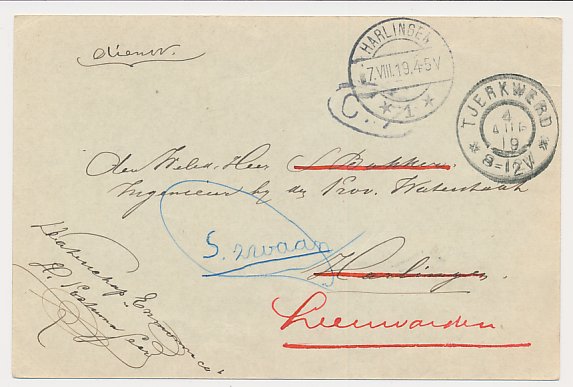 dienst.
HARLINGEN
7.VIII.19.4-5V
1
TJERKWERD
4
AUG
19
8=12V
den Weled. Heer S Bakker
Ingenieur bij de Prov. Waterstaat
Harlingen
Leeuwarden.
Waterschap
H.